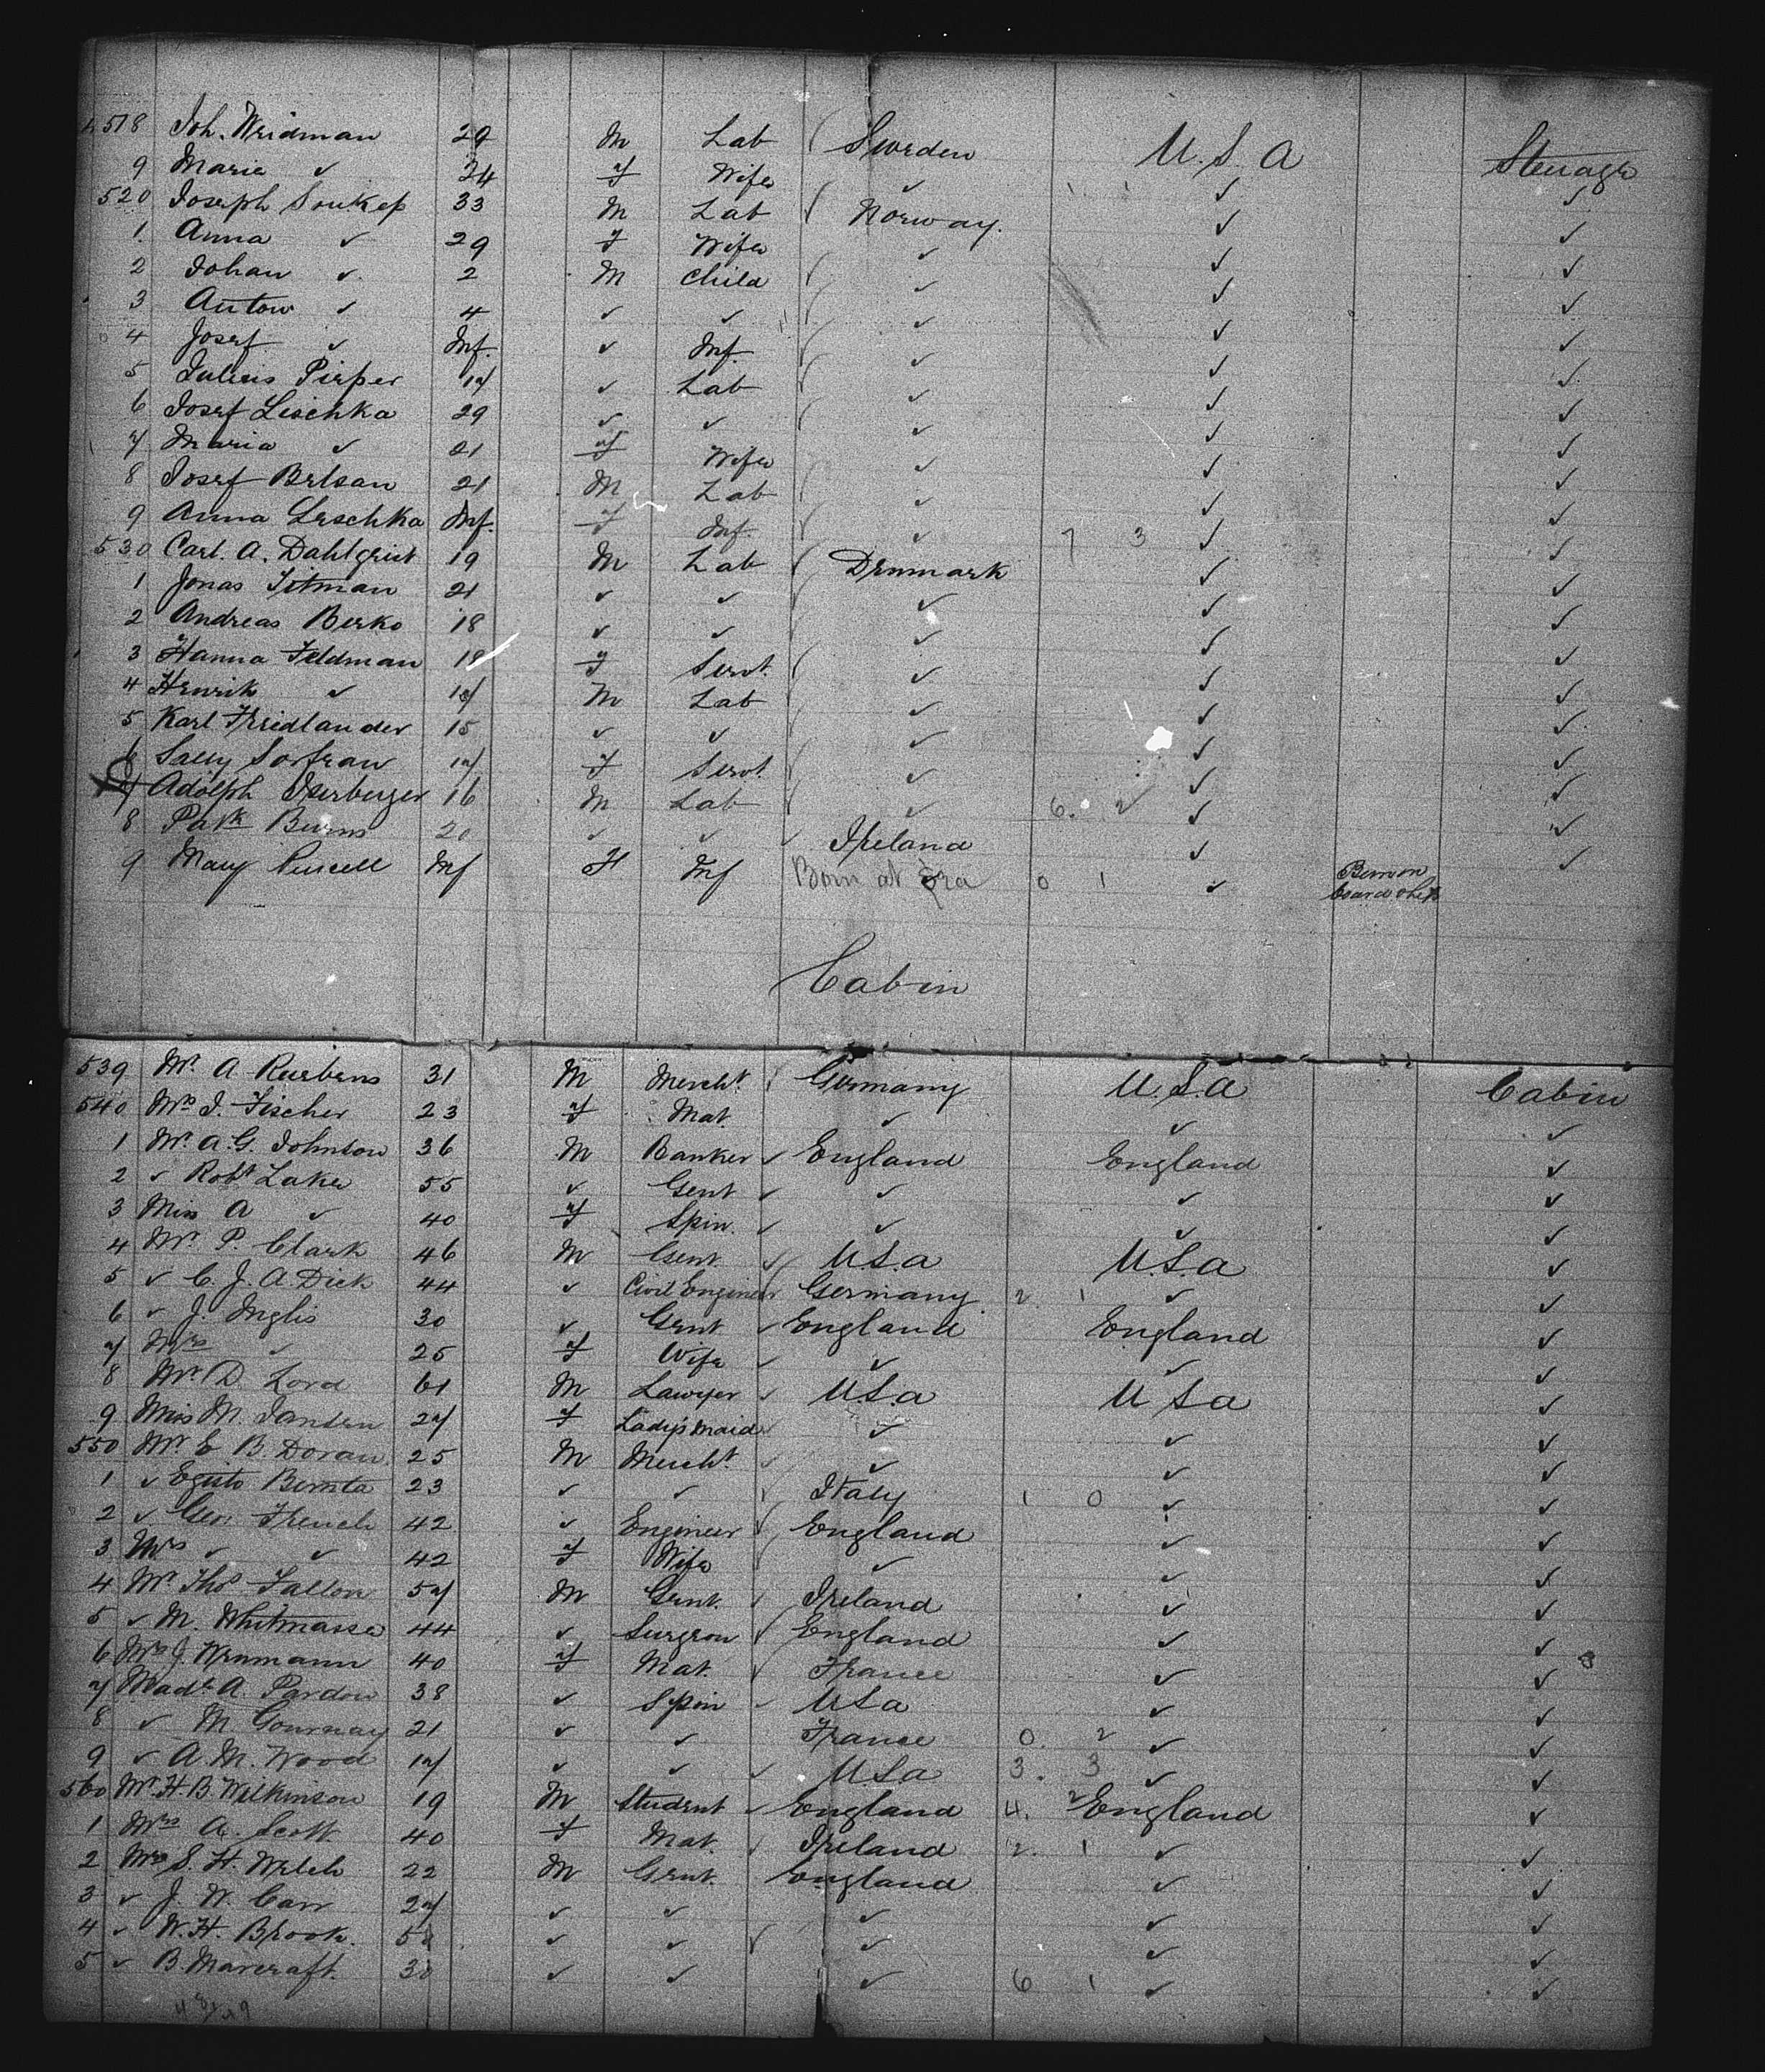 518 Joh. Weidman 29 M Lab Sweden U.S.A Steerage
9 Maria ✓ 24 F Wife ✓ ✓ ✓
520 Joseph Soukep 33 M Lab Norway. ✓ ✓
1. Anna ✓ 29 F Wife ✓ ✓ ✓
2 Johan ✓ 2 M Child ✓ ✓ ✓
3 Anton ✓ 4 ✓ ✓ ✓ ✓ ✓
4 Josef ✓ Inf. ✓ Inf. ✓ ✓ ✓
5 Julius Pieper 17 ✓ Lab ✓ ✓ ✓
6 Josef Leschka 29 ✓ ✓ ✓ ✓ ✓
7 Maria ✓ 21 F Wife ✓ ✓ ✓
8 Josef Belsan 21 M Lab ✓ ✓ ✓
9 Anna Leschka Inf. F Inf. ✓ 7 3 ✓ ✓
530 Carl. A. Dahlgrist 19 M Lab Denmark ✓ ✓
1 Jonas Titman 21 ✓ ✓ ✓ ✓ ✓
2 Andreas Berko 18 ✓ ✓ ✓ ✓ ✓
3 Hanna Feldman 18 F Servt. ✓ ✓ ✓
4 Henrik ✓ M Lab ✓ ✓ ✓
5 Karl Friedlander 15 ✓ ✓ ✓ ✓ ✓
6 Sally 17 F Servt. ✓ ✓ ✓
7 Adolph Iserberger 16 M Lab ✓ 6. 2 ✓ ✓
8 Patk Burns 20 ✓ ✓ ✓ Ireland ✓ ✓
9 Mary Purcell Inf F Inf Born at Sea 0 1 ✓ Born on board ship
Cabin
539 Mr. A Ruebens 31 M Mercht. Germany U.S.A Cabin
540 Mrs J. Fischer 23 F Mat. ✓ ✓ ✓
1 Mr. A.G. Johnson 36 M Banker ✓ England England ✓
2 ✓ Robt Lake 55 ✓ Gent ✓ ✓ ✓ ✓
3 Miss A ✓ 40 F Spin. ✓ ✓ ✓ ✓
4 Mr. P. Clark 46 M Gent. ✓ U.S.a U.S.a ✓
5 ✓ C. J. A. Dick 44 ✓ Civil Engineer Germany 2. 1 ✓ ✓
6 ✓ J. Inglis 30 ✓ Gent ✓ England England ✓
7 Mrs ✓ 25 F Wife ✓ ✓ ✓ ✓
8 Mr. D. Lord 61 M Lawyer ✓ U.S.a U S a ✓
9 Miss M. Jansen 27 F Lady's Maid ✓ ✓ ✓ ✓
550 Mr. E B. Doran 25 M Mercht ✓ ✓ ✓ ✓
1 ✓ Egisto 23 ✓ ✓ ✓ Italy 1 0 ✓ ✓
2 ✓ Geo. French 42 ✓ Engineer ✓ England ✓ ✓
3 Mrs ✓ ✓ 42 F Wife ✓ ✓ ✓ ✓
4 Mr Thos Fallon 57 M Gent. ✓ Ireland ✓ ✓
5 ✓ M. Whitmasse 44 ✓ Surgeon ✓ England ✓ ✓
6 Mrs J. Wrumann 40 F Mat. ✓ France ✓ ✓
7 Made. A. Pardow 38 ✓ Spin ✓ U S a ✓ ✓
8 ✓ M Gournay 21 ✓ ✓ France 0. 2 ✓ ✓
9 ✓ A. M. Wood 17 ✓ ✓ ✓ U S a 3. 3 ✓ ✓
560 Mr. H. B. Wilkinson 19 M Student ✓ England 4. 2 England ✓
1 Mrs A. Scott 40 F Mat. ✓ Ireland 2. 1 ✓ ✓
2 S. H. Welch 22 M Gent. England ✓ ✓
3 ✓ J. W. Carr 27 ✓ ✓ ✓ ✓ ✓
4 ✓ W. H. Brook. ✓ ✓ ✓ ✓ ✓ ✓
5 ✓ B. Marcraft. 30 ✓ ✓ ✓ 6 1 ✓ ✓